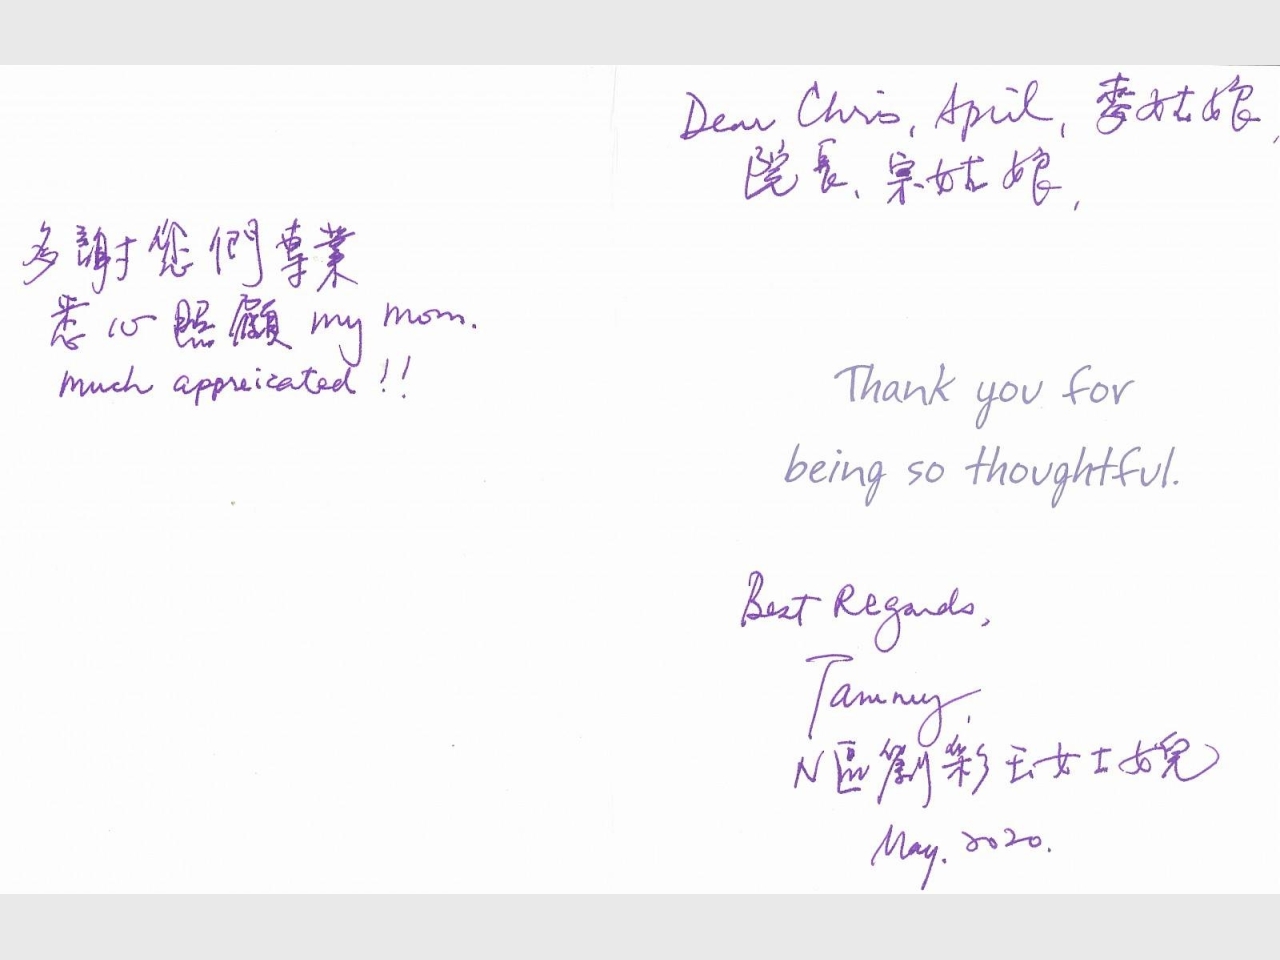 Dear Chris, April, 麥姑娘,
院長, 宗姑娘,
多謝您們專業
悉心照顧 my mom.
much appreicated !!
Thank you for
being so thoughtful.
Best Regards,
Tammy,
N區劉彩玉女士女兒
May. 2020.